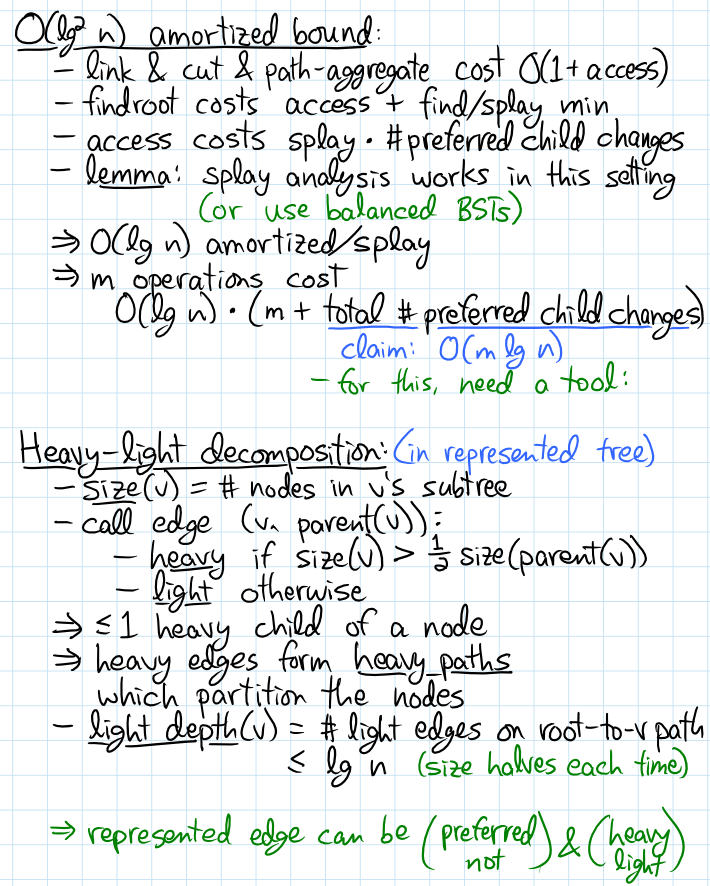 O(lg² n) amortized bound:
– link & cut & path-aggregate cost O(1 + access)
– findroot costs access + find/splay min
– access costs splay · #preferred child changes
– lemma: splay analysis works in this setting
(or use balanced BSTs)
⇒ O(lg n) amortized/splay
⇒ m operations cost
O(lg n) · (m + total # preferred child changes)
claim: O(m lg n)
– for this, need a tool:
Heavy-light decomposition: (in represented tree)
– size(v) = # nodes in v's subtree
– call edge (v, parent(v)):
– heavy if size(v) > ½ size(parent(v))
– light otherwise
⇒ ≤ 1 heavy child of a node
⇒ heavy edges form heavy paths
which partition the nodes
– light depth(v) = # light edges on root-to-v path
≤ lg n (size halves each time)
⇒ represented edge can be (preferred not) & (heavy light)